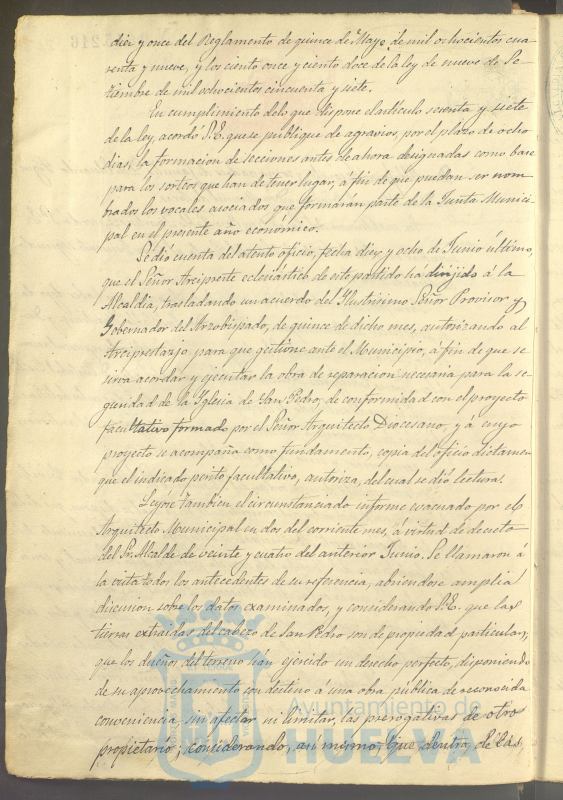 diez y once del Reglamento de quince de Mayo de mil ochocientos cua-
renta y nueve, y los ciento once y ciento doce de la ley de nueve de Se-
tiembre de mil ochocientos cincuenta y siete.
En cumplimiento de lo que dispone el artículo sesenta y siete
de la ley, acordó S.E. que se publique de agravios, por el plazo de ocho
dias, la formacion de secciones antes de ahora designadas como base
para los sorteos que han de tener lugar, á fin de que puedan ser nom-
brados los vocales asociados que formarán parte de la Junta Munici-
pal en el presente año económico.
Se dió cuenta del atento oficio, fecha diez y ocho de Junio último,
que el Señor Arcipreste eclesiástico de este partido ha dirijido á la
Alcaldia, trasladando un acuerdo del Ilustrisimo Señor Provisor y
Gobernador del Arzobispado, de quince de dicho mes, autorizando al
Arciprestazjo para que gestione ante el Municipio, á fin de que se
sirva acordar y ejecutar la obra de reparacion necesaria para la se-
guridad de la Iglesia de San Pedro, de conformidad con el proyecto
facultativo formado por el Señor Arquitecto Diocesano, y á cuyo
proyecto se acompaña como fundamento, copia del oficio dictamen
que el indicado perito facultativo, autoriza, del cual se dió lectura.
Leyose tambien el circunstanciado informe evacuado por el
Arquitecto Municipal en dos del corriente mes, á virtud de decreto
del Sr. Alcalde de veinte y cuatro del anterior Junio. Se llamaron á
la vista todos los antecedentes de su referencia, abriendose amplia
discusion sobre los datos examinados, y considerando S.E. que las
tierras extraidas del cabezo de San Pedro son de propiedad particular;
que los dueños del terreno han ejercido un derecho perfecto, disponiendo
de su aprovechamiento con destino á una obra pública de reconocida
conveniencia, sin afectar ni limitar, las prerogativas de otro
propietario; considerando, así mismo, que, dentro de las
Ayuntamiento de
HUELVA